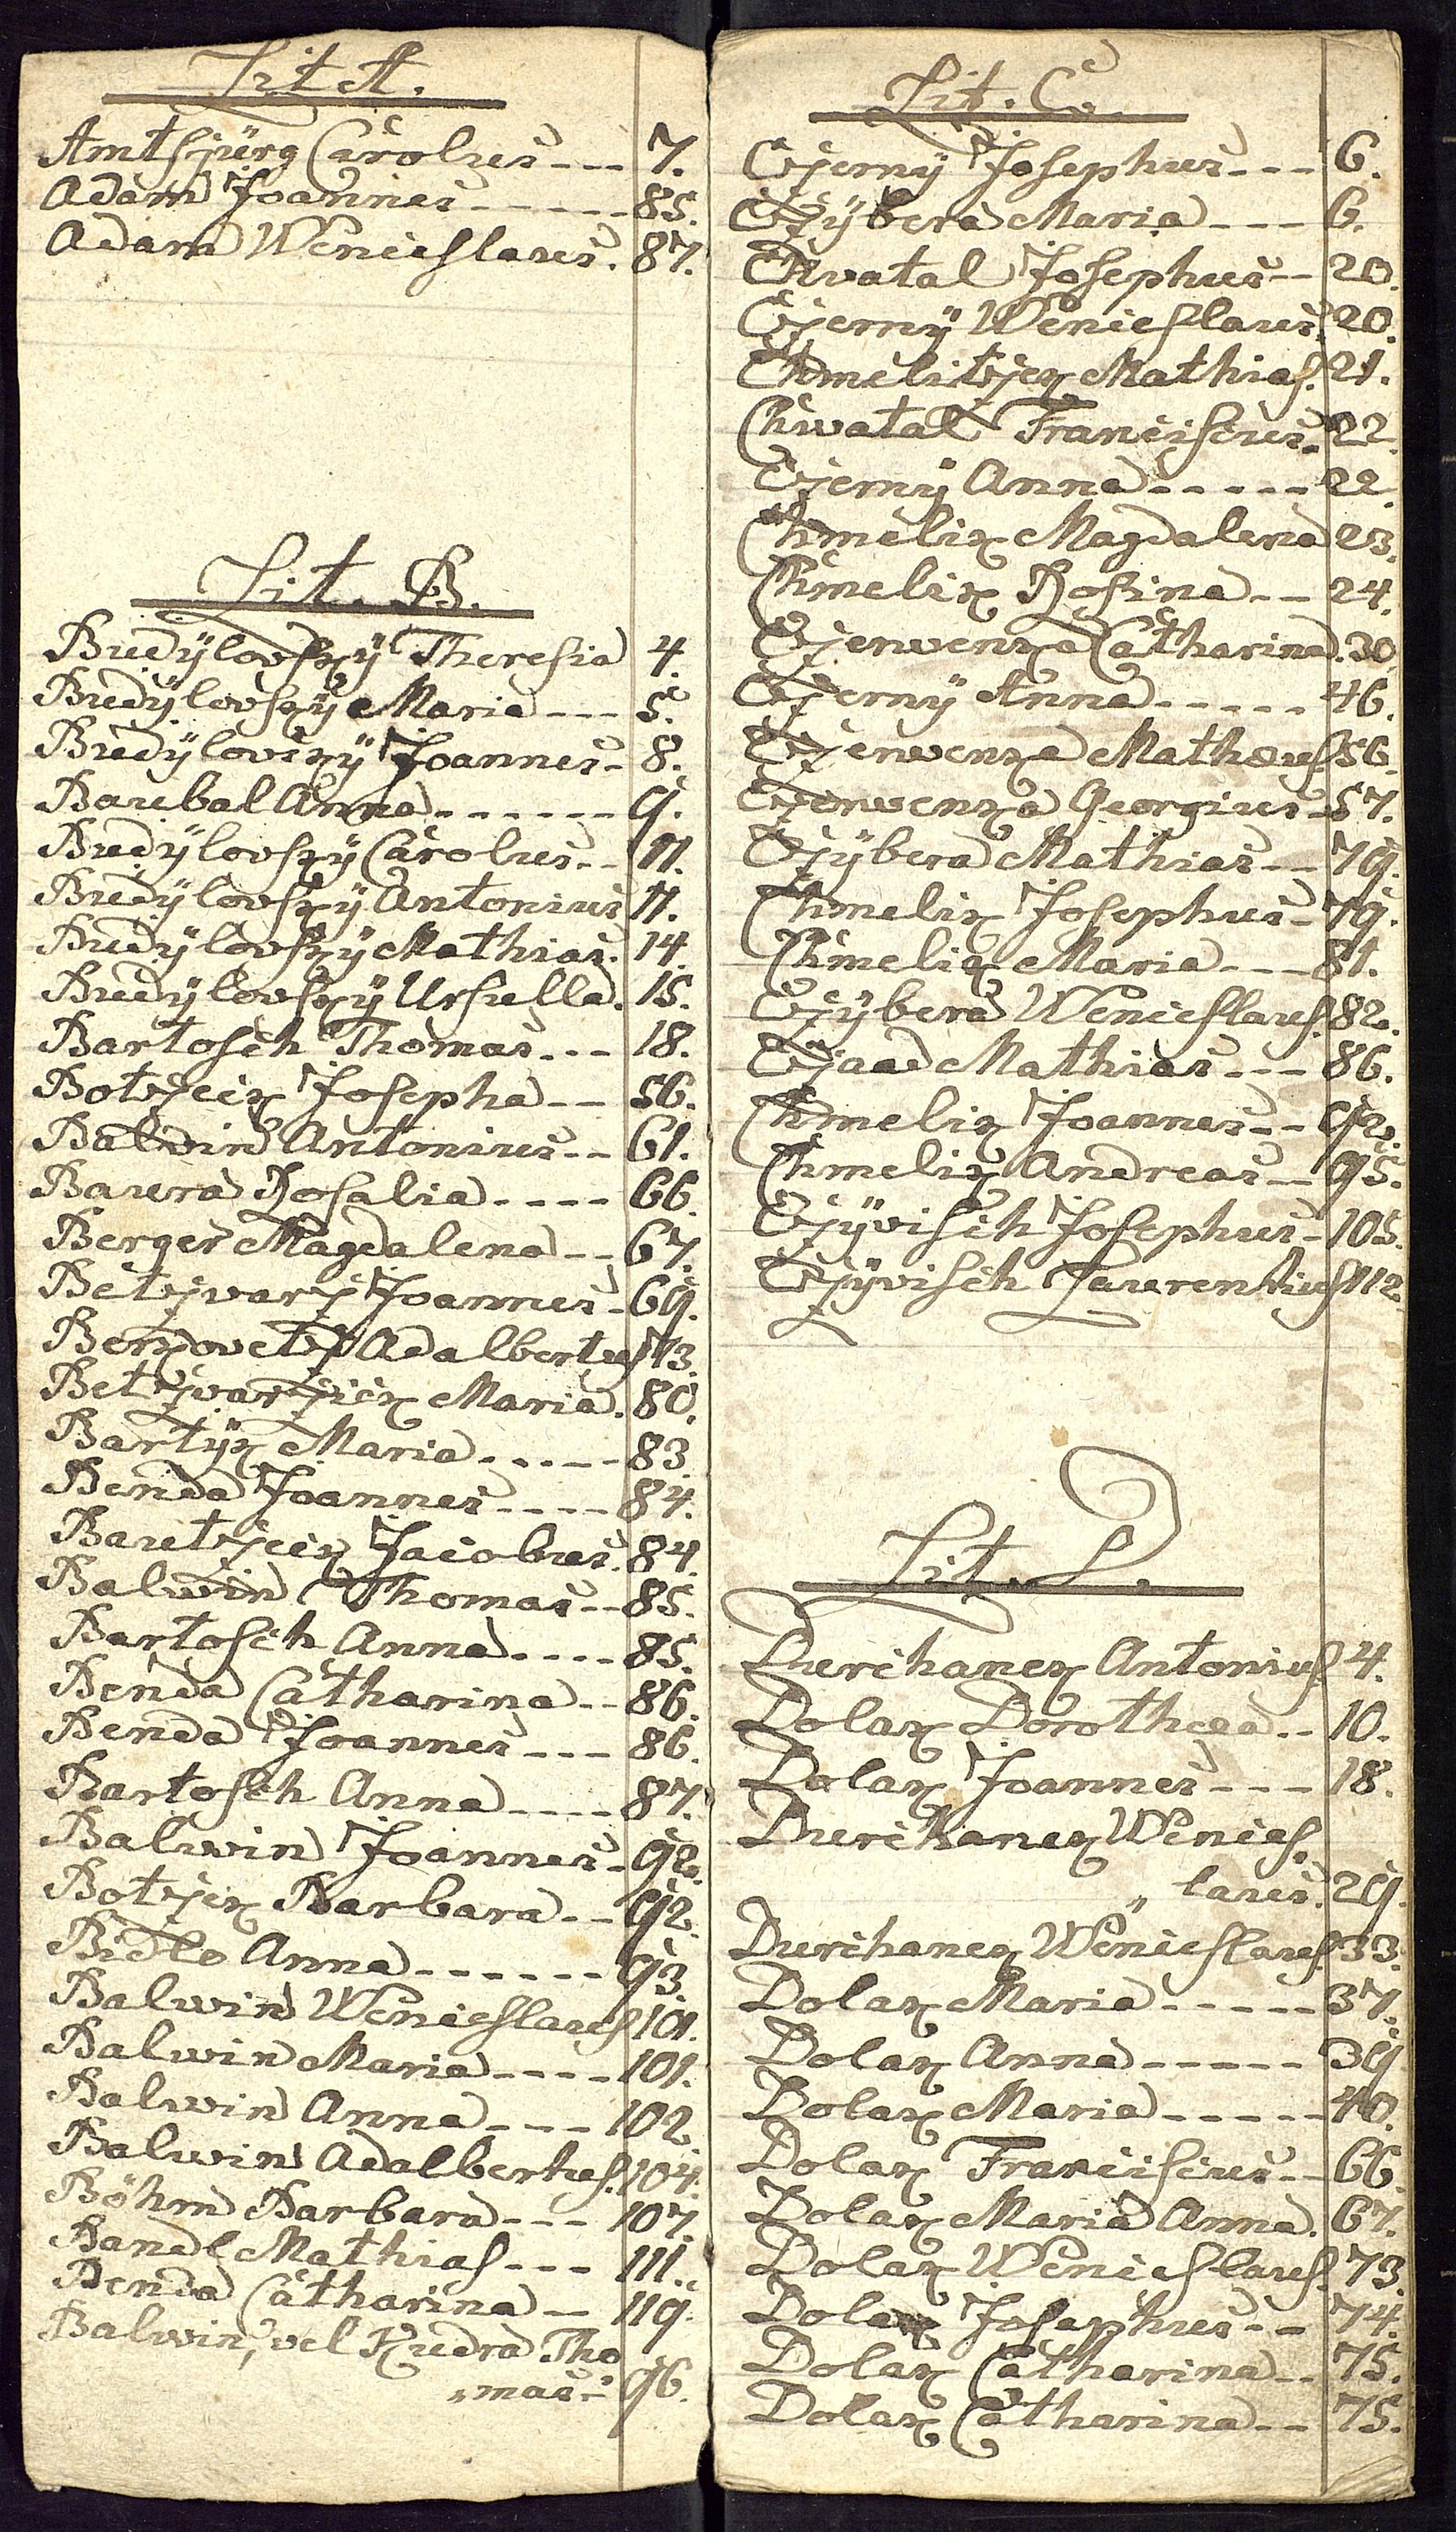 Lit A.
Amtsjürg Carolus --- 7.
Adam Joannes ----- 85.
Adam Wencieslaus. 87.
Lit. B.
Budÿlovskÿ Theresia 4.
Budÿlovskÿ Maria --- 5.
Budÿlovskÿ Joannes - 8.
Baubal Anna ------ 9.
Budÿlovskÿ Carolus -- 11.
Budÿlovskÿ Antonius 11.
Budÿlovskÿ Mathias. 14.
Budÿlovskÿ Ursulla. 15.
Bartosch Thomas --- 18.
Botzeik Josepha -- 56.
Balwin Antonius -- 61.
Baura Rosalia ---- 66.
Berger Magdalena -- 67.
Betzvarz Joannes - 69.
Berkovetz Adalbertus 73.
Betzvarzick Maria. 80.
Bartÿk Maria ----- 83.
Benda Joannes ---- 84.
Bautzeik Jacobus. 84.
Balwin Thomas -- 85.
Bartosch Anna ---- 85.
Benda Catharina -- 86.
Benda Joannes --- 86.
Bartosch Anna ---- 87.
Balwin Joannes - 92.
Botzek Barbara -- 92.
Bidlo Anna ------ 93.
Balwin Wencieslaus 101.
Balwin Maria ---- 101.
Balwin Anna --- 102.
Balwin Adalbertus. 104.
Böhm Barbara --- 107.
Bandl Mathias --- 111.
Benda Catharina -- 119.
Balwin, vel Kudra Tho
„mas - 96.
Lit. C.
Czerny Josephus --- 6.
Czÿbera Maria --- 6.
Chvatal Josephus -- 20.
Czernÿ Wencieslaus. 20.
Chmelitzek Mathias. 21.
Chwatal Franciscus. 22.
Czernÿ Anna ----- 22.
Chmelik Magdalena 23.
Chmelik Rosina -- 24.
Czerwenka Catharina. 30.
Czerny Anna ----- 46.
Czerwenka Mathæus. 56.
Czerwenka Georgius - 57.
Czÿbera Mathias -- 79.
Chmelik Josephus - 79.
Chmelik Maria --- 81.
Czÿbera Wencieslaus. 82.
Czaad Mathias --- 86.
Chmelik Joannes -- 92.
Chmelik Andreas -- 95.
Czÿvisch Josephus - 105.
Czÿvisch Laurentius 112.
Lit. D.
Durchanek Antonius 4.
Dolak Dorothea -- 10.
Dolak Joannes --- 18.
Durchanek Wencies,
„ laus. 29.
Durchanek Wencieslaus. 33.
Dolak Maria ----- 37.
Dolak Anna ----- 39.
Dolak Maria ----- 40.
Dolak Franciscus -- 66.
Dolak Maria Anna. 67.
Dolak Wencieslaus. 73.
Dolak Josephus -- 74.
Dolak Catharina -- 75.
Dolak Catharina -- 75.